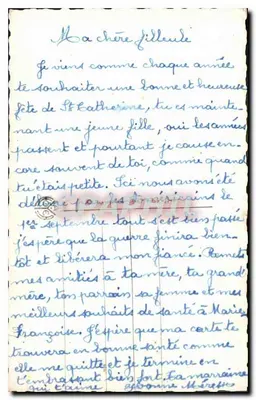 Ma chère filleule
Je viens comme chaque année
te souhaiter une bonne et heureuse
fête de St Catherine, tu es mainte-
nant une jeune fille, oui les années
passent et pourtant je cause en-
core souvent de toi, comme quand
tu étais petite. Ici nous avons été
par les américains le
1er septembre tout s'est bien passé
j'espère que la guerre finira bien-
tôt et libérera mon fiancé. Remets
mes amitiés à ta mère, ta grand'
mère, ton parrain sa femme et mes
meilleurs souhaits de santé à Marie
Françoise. J'espère que ma carte te
trouvera en bonne santé comme
elle me quitte et je termine en
t'embrassant bien fort. Ta marraine
qui t'aime Yvonne